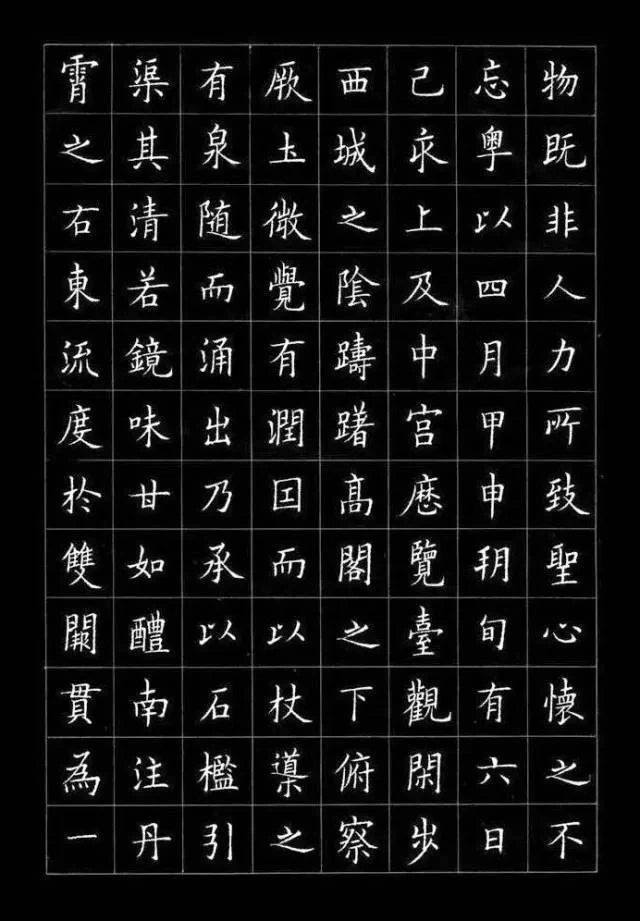 物既非人力所致聖心懷之不
忘粤以四月甲申朔旬有六日
己亥上及中宫歷覽臺觀閑歩
西城之陰躊躇髙閣之下俯察
厥圡微覺有潤因而以杖導之
有泉随而涌出乃承以石檻引
渠其清若鏡味甘如醴南注丹
霄之右東流度扵雙闕貫為一